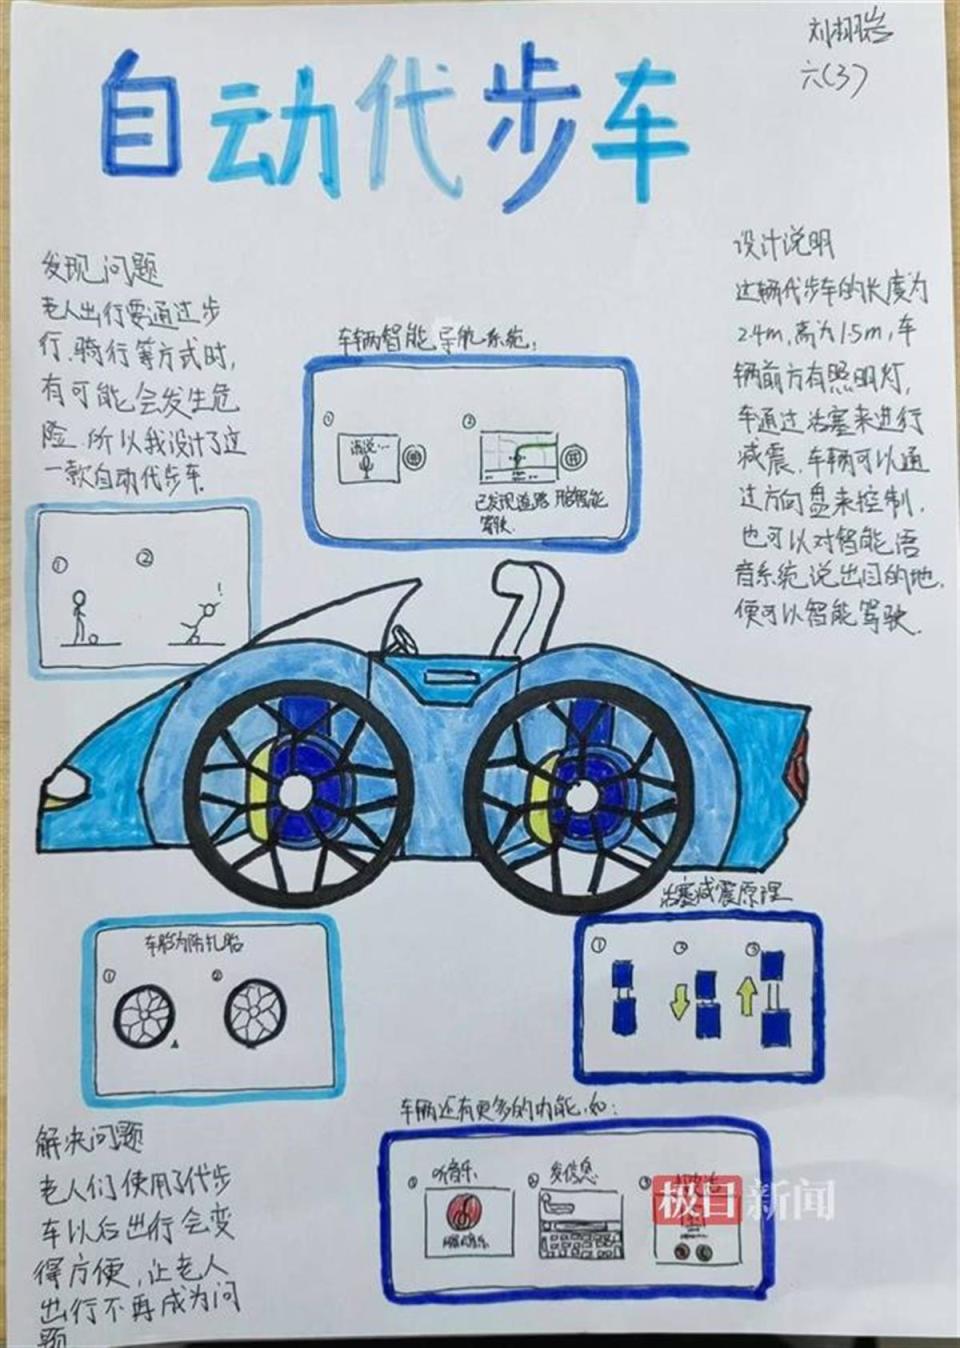 自动代步车
刘栩岩
六(3)
发现问题
老人出行要通过步
行、骑行等方式时,
有可能会发生危
险.所以我设计了这
一款自动代步车.
车辆智能导航系统:
①
请说…
②
已发现道路 开启智能
驾驶.
设计说明
这辆代步车的长度为
2.4m,高为1.5m,车
辆前方有照明灯,
车通过活塞来进行
减震.车辆可以通
过方向盘来控制,
也可以对智能语
音系统说出目的地,
便可以智能驾驶.
①
②
!
车胎为防扎胎
①
②
活塞减震原理
①
②
③
解决问题
老人们使用了代步
车以后出行会变
得方便,让老人
出行不再成为问
题
车辆还有更多的功能,如:
① 听音乐
② 发信息
③
极目新闻